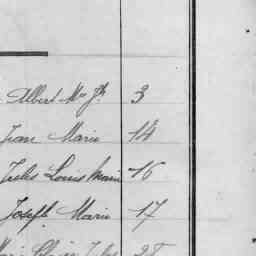 Albert Mie Jh 3
Jean Marie 14
Jules Louis Marie 16
Joseph Marie 17
Jules 28